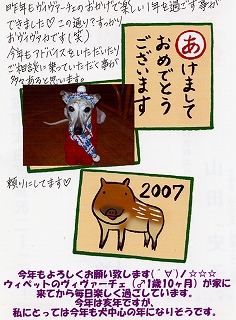 昨年もヴィヴァーチェのおかげで楽しい1年を過ごす事が
できました♡この通り?すっかり
おヴィヴァカです(笑)
今年もアドバイスをいただいたり
ご相談に乗っていただく事が
多々あると思います。
頼りにしてます♡
あけまして
おめでとう
ございます
2007
今年もよろしくお願い致します(´∀`)/☆☆☆
ウィペットのヴィヴァーチェ(♂1歳10ヶ月)が家に
来てから毎日楽しく過ごしています。
今年は亥年ですが、
私にとっては今年も犬中心の年になりそうです。